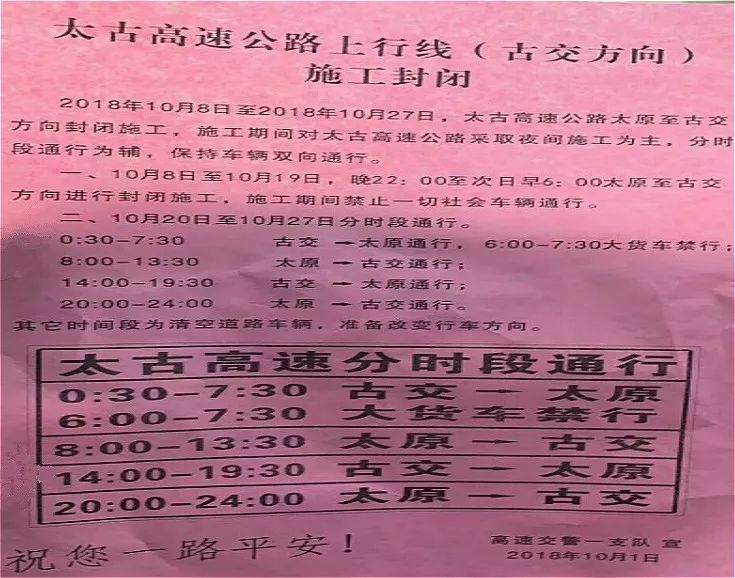 太古高速公路上行线（古交方向）
施工封闭
2018年10月8日至2018年10月27日，太古高速公路太原至古交
方向封闭施工，施工期间对太古高速公路采取夜间施工为主，分时
段通行为辅，保持车辆双向通行。
一、10月8日至10月19日，晚22：00至次日早6：00太原至古交
方向进行封闭施工，施工期间禁止一切社会车辆通行。
二、10月20日至10月27日分时段通行。
0:30-7:30 古交→太原通行，6:00-7:30大货车禁行；
8:00-13:30 太原→古交通行；
14:00-19:30 古交→太原通行；
20:00-24:00 太原→古交通行。
其它时间段为清空道路车辆，准备改变行车方向。
太古高速分时段通行
0:30-7:30 古交→太原
6:00-7:30 大货车禁行
8:00-13:30 太原→古交
14:00-19:30 古交→太原
20:00-24:00 太原→古交
祝您一路平安！
高速交警一支队 宣
2018年10月1日